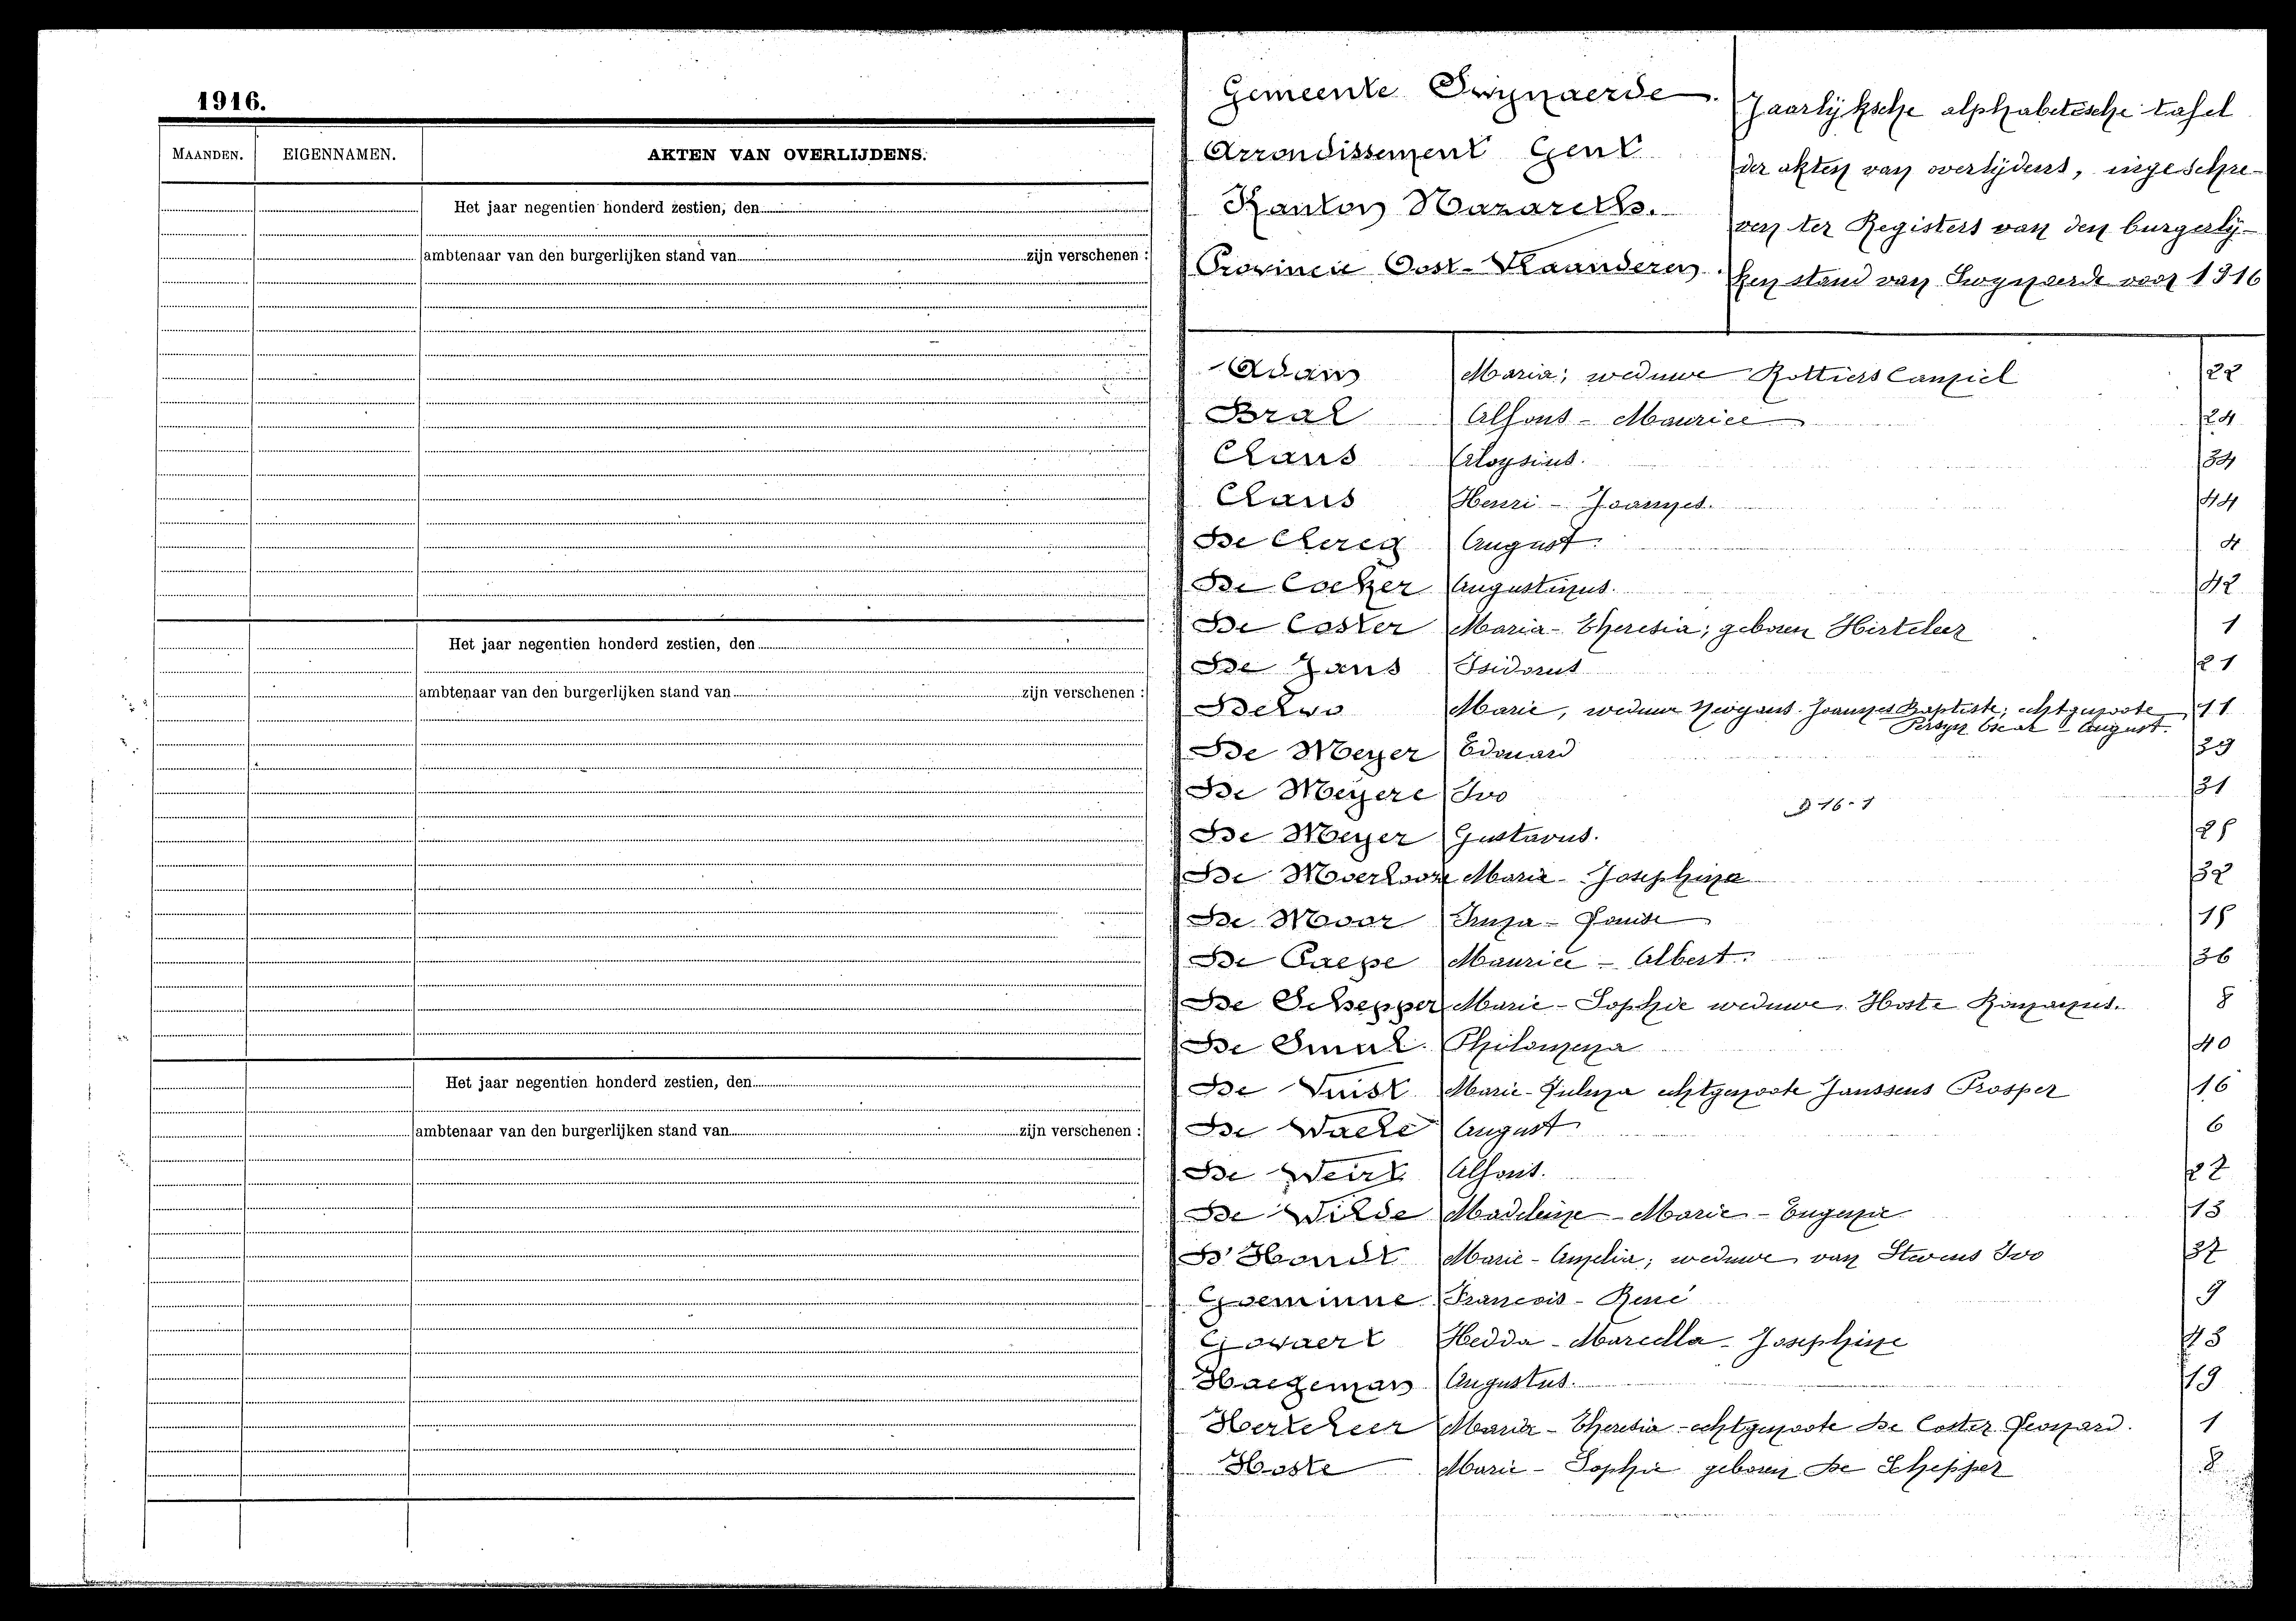 1916.
MAANDEN. EIGENNAMEN. AKTEN VAN OVERLIJDENS.
Het jaar negentien honderd zestien, den
ambtenaar van den burgerlijken stand van zijn verschenen :
Het jaar negentien honderd zestien, den
ambtenaar van den burgerlijken stand van zijn verschenen :
Het jaar negentien honderd zestien, den
ambtenaar van den burgerlijken stand van zijn verschenen :
Gemeente Swijnaerde.
Arrondissement Gent
Kanton Nazareth.
Provincie Oost-Vlaanderen.
Jaarlijksche alphabetische tafel
der akten van overlijdens, ingeschre-
ven ter Registers van den burgerlij-
ken stand van Swynaerde voor 1916
Adam Maria; weduwe Rottiers Canziel 22
Bral Alfons - Maurice 24
Claus Aloysius. 34
Claus Henri - Joannes. 44
De Clercq August. 4
De Cocker Augustinus. 42
De Coster Maria-Theresia; geboren Hirteleer 1
De Jans Isidorus 21
Delvo Marie, weduwe Joannes Baptiste; echtgenoote 11
Persyn Oscar - August.
De Meyer Edouard 39
De Meyere Ivo 31
D 16-1
De Meyer Gustavus. 25
De Moerloose Marie - Josephina 32
De Moor Irma - Louise 15
De Paepe Maurice - Albert. 36
De Schepper Marie - Sophie weduwe Hoste Romanus. 8
De Smul. Philomena 40
De Vuist Marie-Julma echtgenoote Janssens Prosper 16
De Waele August 6
De Weirt Alfons. 27
De Wilde Madeleine - Marie - Eugenie 13
D'Hondt Marie - Amelia; weduwe van Stevens Ivo 37
Goeminne Francois - René 9
Govaert Hedda - Marcella - Josephine 43
Haegeman Augustus. 19
Herteleer Maria - Theresia - echtgenoote De Coster Leonard. 1
Hoste Marie - Sophie geboren De Schepper 8